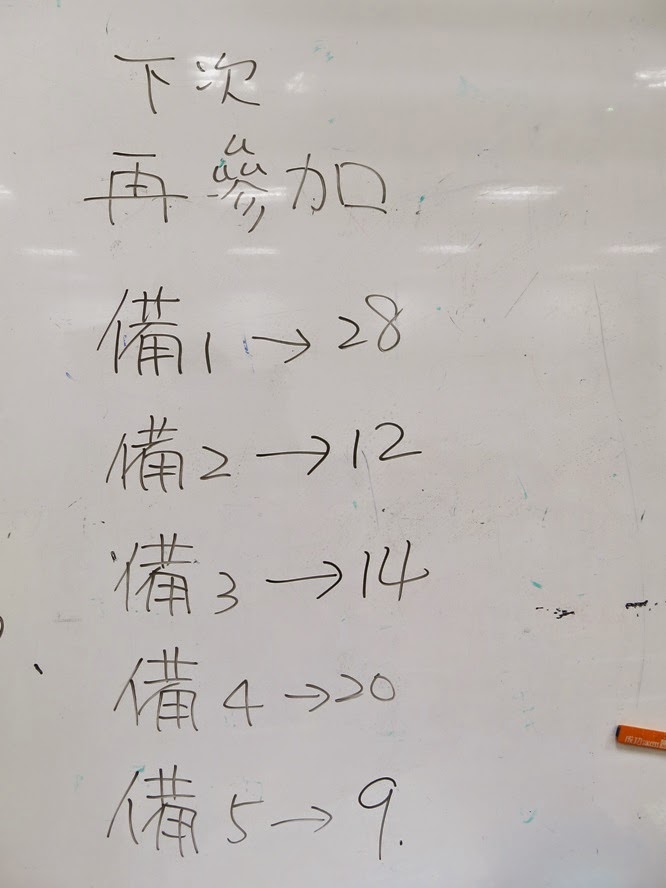 下次
再參加
備1→28
備2→12
備3→14
備4→20
備5→9.